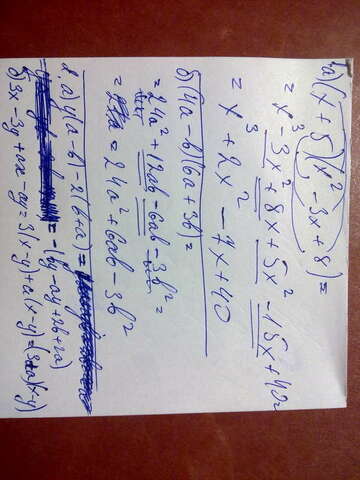 1a) (x + 5)(x² - 3x + 8) =
= x³ - 3x² + 8x + 5x² - 15x + 40 =
= x³ + 2x² - 7x + 40
б) (4a - b)(6a + 3b) =
= 24a² + 12ab - 6ab - 3b² =
= 24a² + 6ab - 3b²
2. а) y(a - b) - 2(b + a) =
= -(by - ay + 2b + 2a)
б) 3x - 3y + ax - ay = 3(x - y) + a(x - y) = (3+a)(x - y)